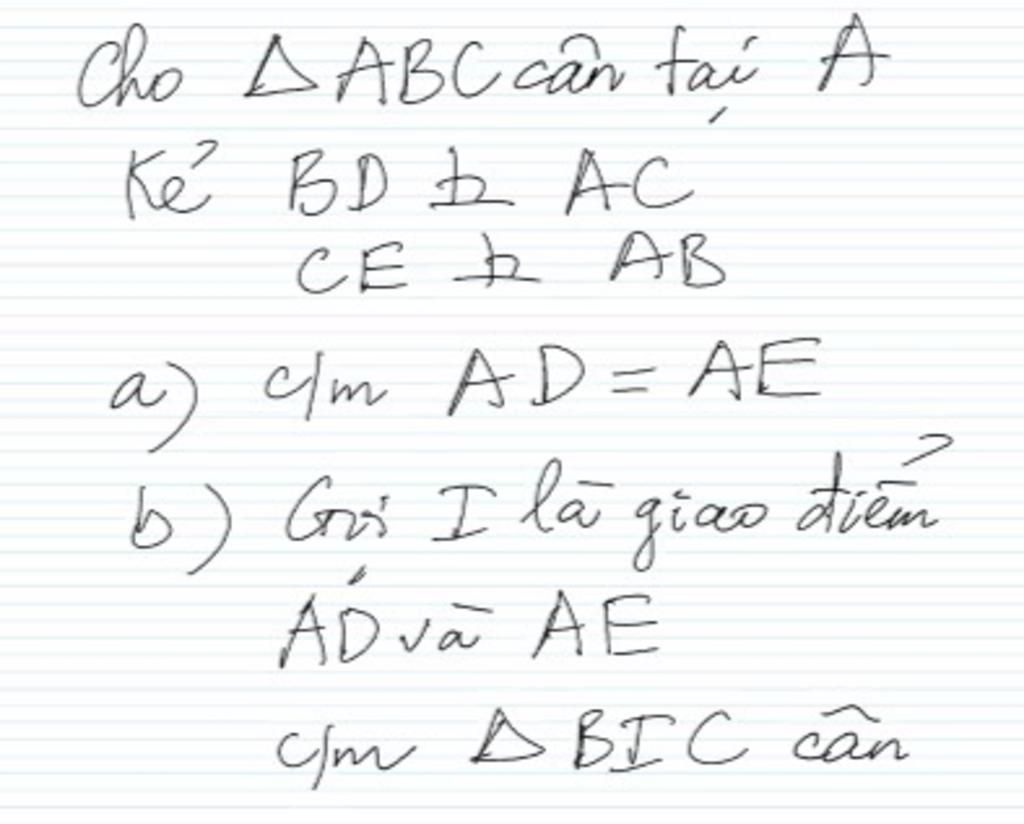 Cho △ ABC cân tại A
Kẻ BD ⊥ AC
CE ⊥ AB
a) c/m AD = AE
b) Gọi I là giao điểm
AD và AE
c/m △ BIC cân